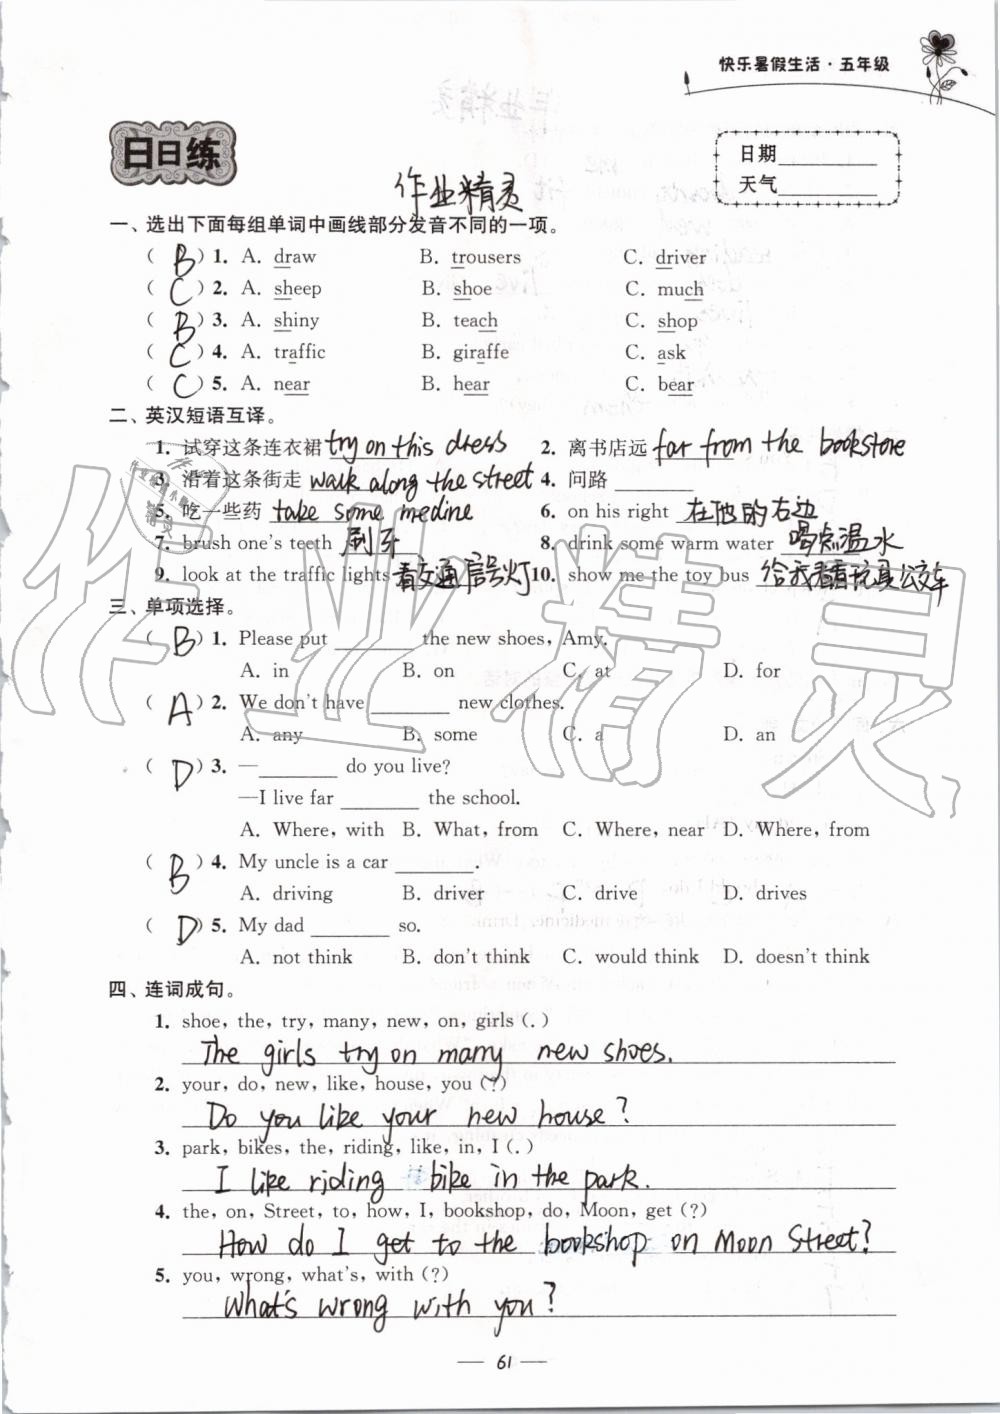 快乐暑假生活·五年级
日日练
日期
天气
作业精灵
一、选出下面每组单词中画线部分发音不同的一项。
( B ) 1. A. draw B. trousers C. driver
( C ) 2. A. sheep B. shoe C. much
( B ) 3. A. shiny B. teach C. shop
( C ) 4. A. traffic B. giraffe C. ask
( C ) 5. A. near B. hear C. bear
二、英汉短语互译。
1. 试穿这条连衣裙 try on this dress 2. 离书店远 far from the bookstore
3. 沿着这条街走 walk along the street 4. 问路
5. 吃一些药 take some medine 6. on his right 在他的右边
7. brush one's teeth 刷牙 8. drink some warm water 喝点温水
9. look at the traffic lights 看交通信号灯 10. show me the toy bus 给我看看玩具公交车
三、单项选择。
( B ) 1. Please put ________ the new shoes, Amy.
A. in B. on C. at D. for
( A ) 2. We don't have ________ new clothes.
A. any B. some C. a D. an
( D ) 3. —________ do you live?
—I live far ________ the school.
A. Where, with B. What, from C. Where, near D. Where, from
( B ) 4. My uncle is a car ________.
A. driving B. driver C. drive D. drives
( D ) 5. My dad ________ so.
A. not think B. don't think C. would think D. doesn't think
四、连词成句。
1. shoe, the, try, many, new, on, girls (.)
The girls try on many new shoes.
2. your, do, new, like, house, you (?)
Do you like your new house?
3. park, bikes, the, riding, like, in, I (.)
I like riding bike in the park.
4. the, on, Street, to, how, I, bookshop, do, Moon, get (?)
How do I get to the bookshop on Moon Street?
5. you, wrong, what's, with (?)
What's wrong with you?
61
作业精灵